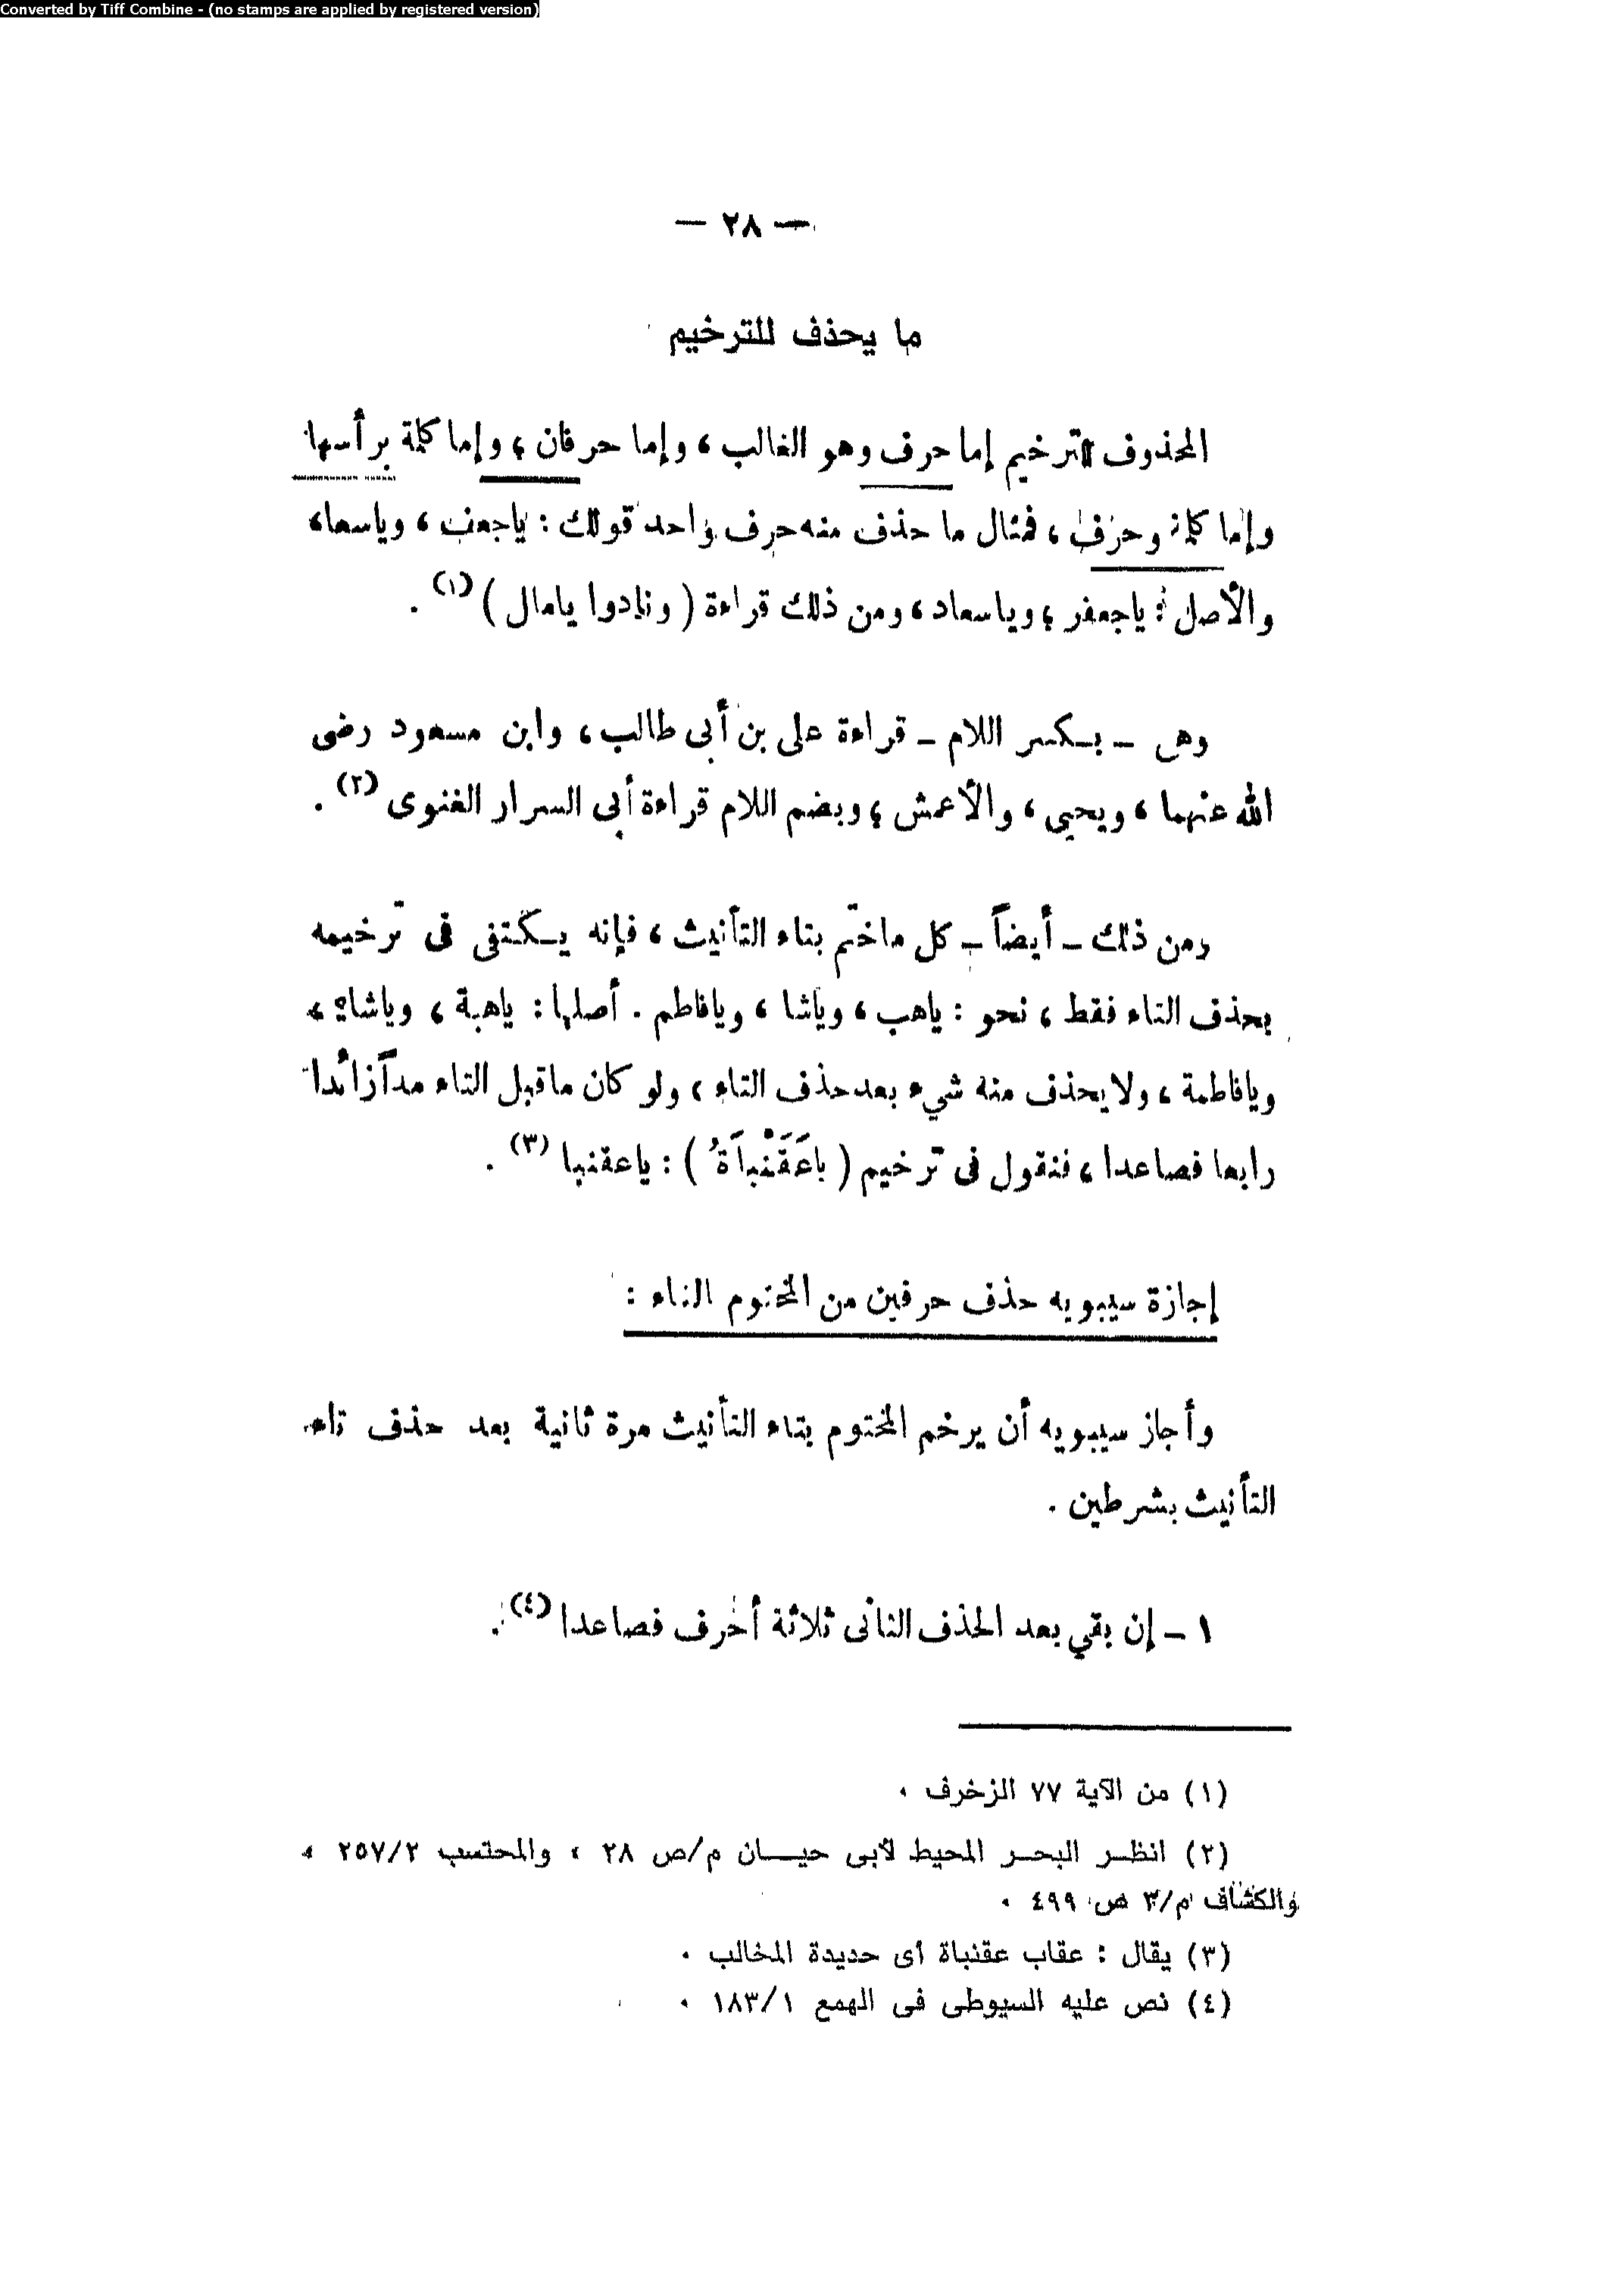 Converted by Tiff Combine - (no stamps are applied by registered version)
— ٢٨ —
ما يحذف للترخيم
المحذوف للترخيم إما حرف وهو الغالب ، وإما حرفان ، وإما كلمة برأسها
وإما كلمة وحرف ، فمثال ما حذف منه حرف واحد قولك : ياجعف ، وياسعا ،
والأصل : ياجعفر ، وياسعاد ، ومن ذلك قراءة ( ونادوا يامال ) (١) .
وهى ــ بكسر اللام ــ قراءة على بن أبى طالب ، وابن مسعود رضى
الله عنهما ، ويحيى ، والأعمش ، وبضم اللام قراءة أبى السرار الغنوى (٢) .
ومن ذلك ــ أيضاً ــ كل ماختم بتاء التأنيث ، فإنه يكتفى فى ترخيمه
بحذف التاء فقط ، نحو : ياهب ، وياشا ، ويافاطم . أصلها : ياهبة ، وياشاة ،
ويافاطمة ، ولايحذف منه شيء بعد حذف التاء ، ولو كان ماقبل التاء مداً زائدا
رابعا فصاعدا ، فنقول فى ترخيم ( ياعَقَنْباَةُ ) : ياعقنبا (٣) .
إجازة سيبويه حذف حرفين من المختوم التاء :
وأجاز سيبويه أن يرخم المختوم بتاء التأنيث مرة ثانية بعد حذف تاء
التأنيث بشرطين .
١ ــ إن بقي بعد الحذف الثانى ثلاثة أحرف فصاعدا (٤) .
(١) من الآية ٧٧ الزخرف .
(٢) انظر البحر المحيط لأبى حيان م/ص ٢٨ ، والمحتسب ٢٥٧/٢ ،
والكشاف م/٣ ص ٤٩٩ .
(٣) يقال : عقاب عقنباة أى حديدة المخالب .
(٤) نص عليه السيوطى فى الهمع ١٨٣/١ .